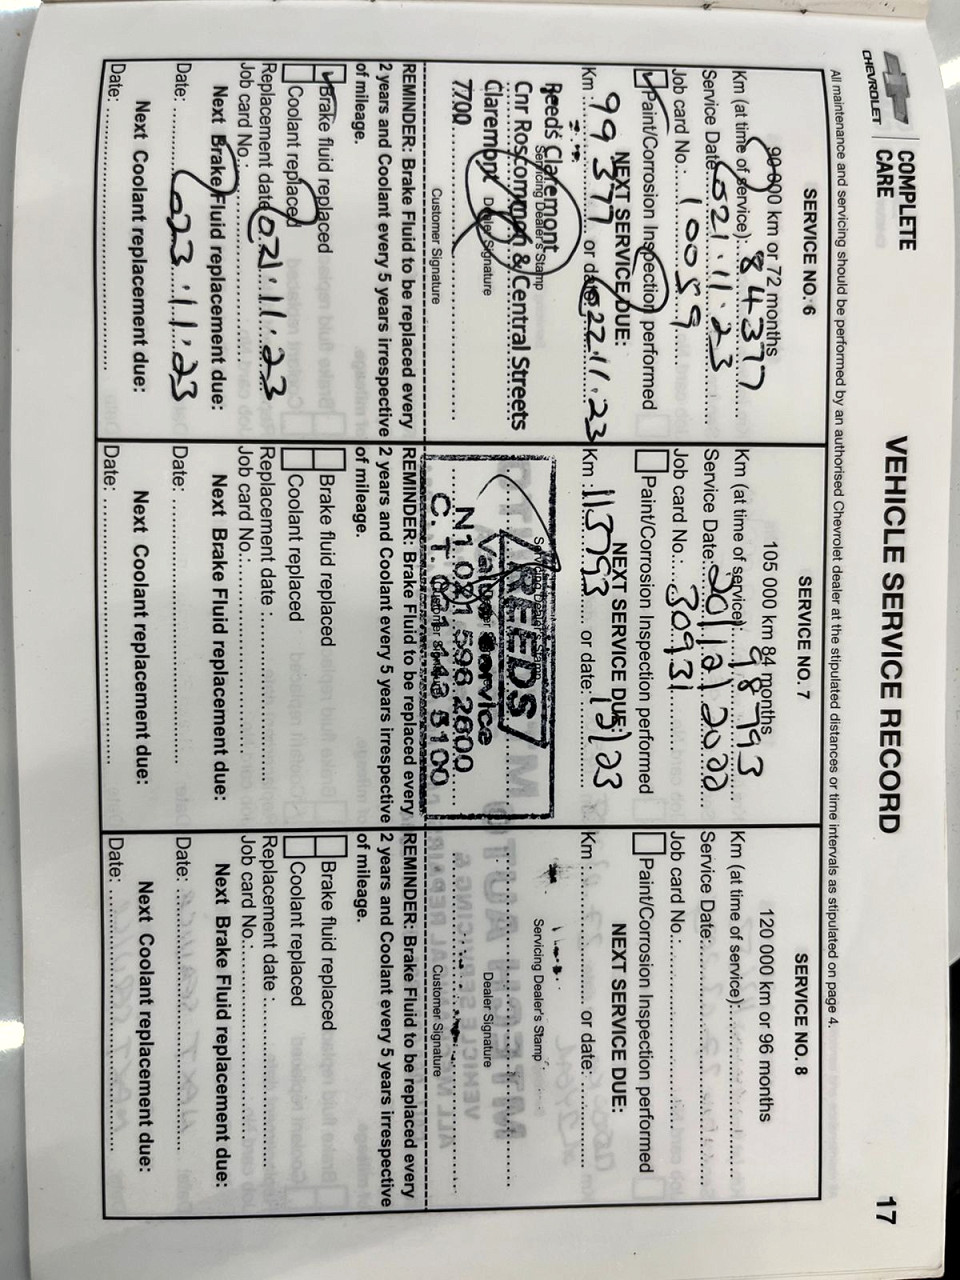 CHEVROLET
COMPLETE
CARE
VEHICLE SERVICE RECORD
17
All maintenance and servicing should be performed by an authorised Chevrolet dealer at the stipulated distances or time intervals as stipulated on page 4.
SERVICE NO. 6
90 000 km or 72 months
Km (at time of service): 84377
Service Date: 021.11.23
Job card No.: 10059
Paint/Corrosion Inspection performed
NEXT SERVICE DUE:
Km 99377 or date: 022.11.23
Servicing Dealer's Stamp
Reeds Claremont
Cnr Roscommon & Central Streets
Claremont
Dealer Signature
7700
Customer Signature
REMINDER: Brake Fluid to be replaced every
2 years and Coolant every 5 years irrespective
of mileage.
Brake fluid replaced
Coolant replaced
Replacement date: 021.11.23
Job card No.:
Next Brake Fluid replacement due:
Date: 023.11.23
Next Coolant replacement due:
Date:
SERVICE NO. 7
105 000 km 84 months
Km (at time of service): 98793
Service Date: 20/12/2022
Job card No.: 30931
Paint/Corrosion Inspection performed
NEXT SERVICE DUE:
Km: 113793 or date: 12/23
Servicing Dealer's Stamp
REEDS
Value Service
N1 021 596 2600
C.T. 021 443 5100
Customer Signature
REMINDER: Brake Fluid to be replaced every
2 years and Coolant every 5 years irrespective
of mileage.
Brake fluid replaced
Coolant replaced
Replacement date :
Job card No.:
Next Brake Fluid replacement due:
Date:
Next Coolant replacement due:
Date:
SERVICE NO. 8
120 000 km or 96 months
Km (at time of service):
Service Date:
Job card No.:
Paint/Corrosion Inspection performed
NEXT SERVICE DUE:
Km : or date:
Servicing Dealer's Stamp
Dealer Signature
Customer Signature
REMINDER: Brake Fluid to be replaced every
2 years and Coolant every 5 years irrespective
of mileage.
Brake fluid replaced
Coolant replaced
Replacement date :
Job card No.:
Next Brake Fluid replacement due:
Date:
Next Coolant replacement due:
Date: